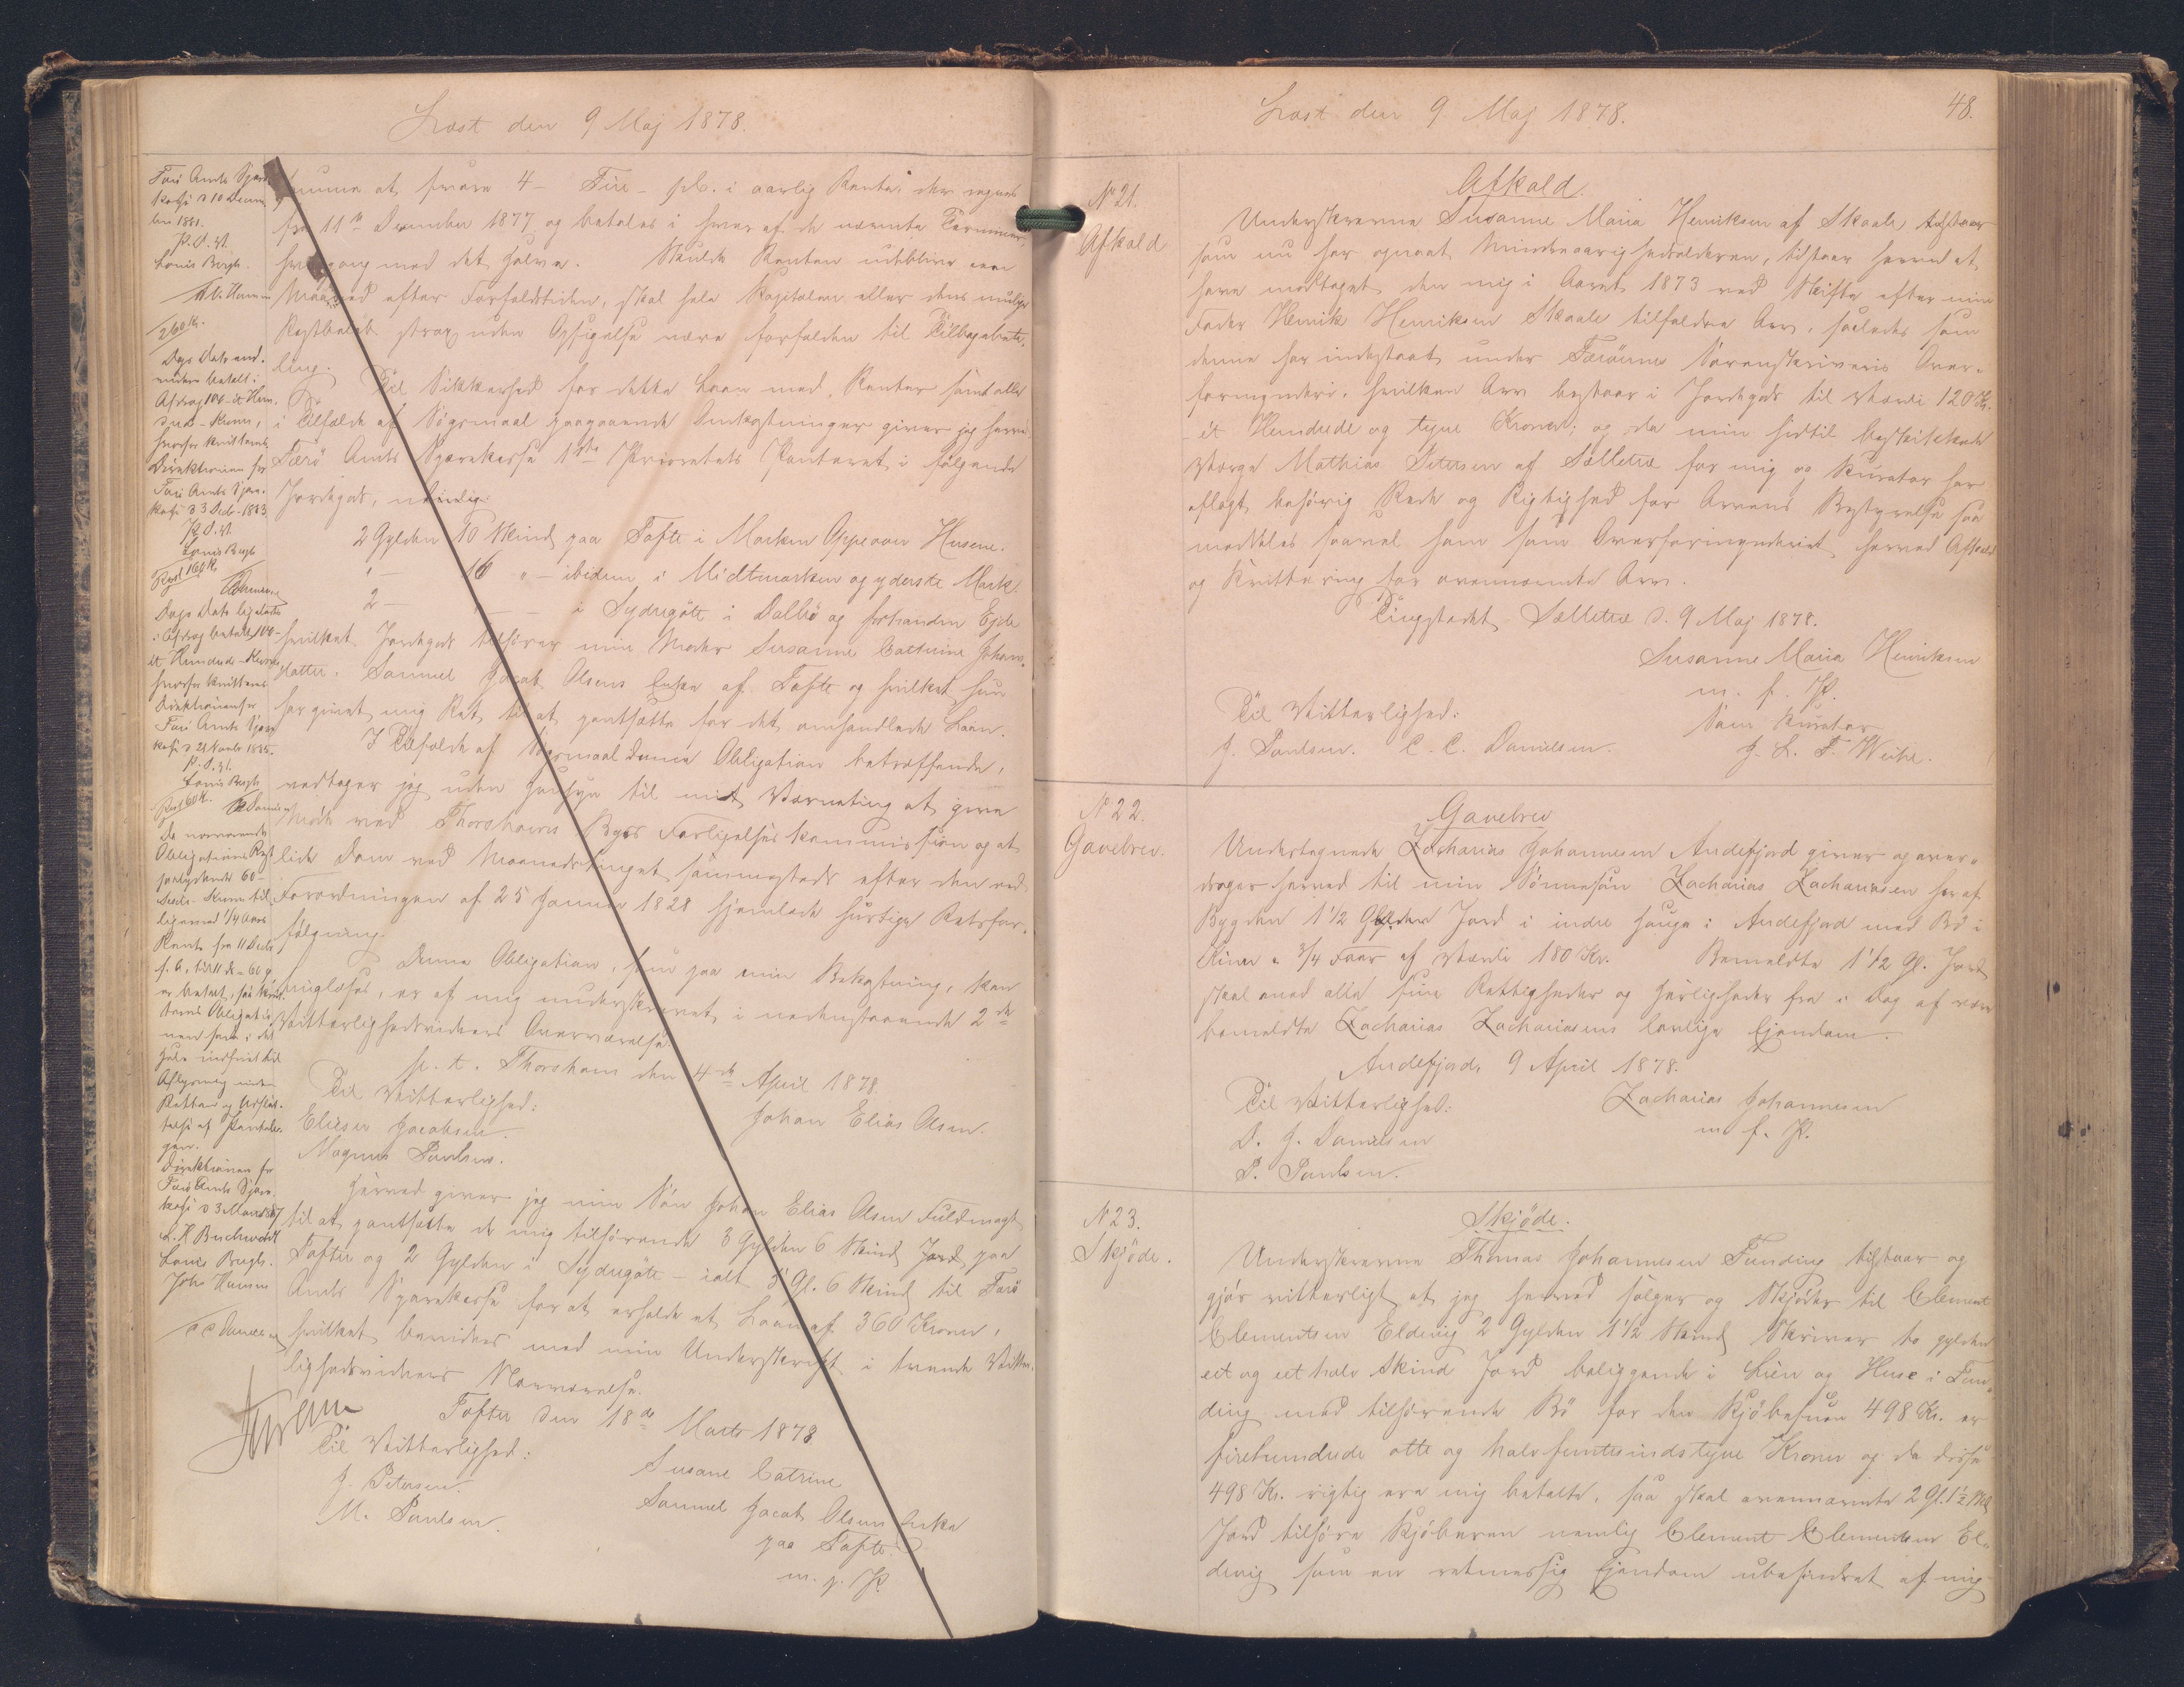 Læst den 9 Maj 1878.
Færö Amts Spare
kasse d 10 Decem
ber 1881.
P. D. V.
Louis Bergh.
260 Kr.
Dags Dato end.
videre betalt i
Afdrag 100 - et Hun.
drede - Kroner,
hvorfor kvitteres
Direktionen for
Færö Amts Spare.
kasse d 3 Decbr. 1883
P. D. V.
Louis Bergh
Rest 160 Kr.
Dags Dato ligeledes
i Afdrag betalt 100 -
et Hundrede - Kroner
hvorfor kvitteres
Direktionen for
Færö Amts Spare
kasse d 21 Novbr 1885.
P. D. V.
Louis Bergh
Rest 60 Kr.
Da nærværende
Obligations Rest
paalydende 60 -
Kroner til
ligemed 1/4 Aars
Rente fra 11 Decbr
er betalt, saa kvit.
teres Obligatio
nen som i det
Hele indfriet til
Aflysning inden
Retten og Udslet.
telse af Pantebo
gen.
Direktionen for
Færö Amts Spare
kasse d 3 Marts 1887
Louis Bergh.
Joh. Hansen
summa at svare 4 - Fire - pCt. i aarlig Rente, der regnes
fra 11te December 1877 og betales i hver af de nævnte Terminer
hvergang med det halve. Skulde Renten udeblive een
Maaned efter Forfaldstiden, skal hele Kapitalen eller dens mulige
Restbeløb strax uden Opsigelse være forfalden til Tilbagebeta,
ling.
Til Sikkerhed for dette Laan med Renter samt alle
i Tilfælde af Søgsmaal paagaaende Omkostninger giver jeg herved
Færö Amts Sparekasse 1ste Prioritets Panteret i følgende
Jordegods, nemlig:
2 Gylden 10 Skind paa Tofte i Marken Oppe over Husene.
" — 16 " — ibidem i Midtmarken og yderste Mark.
2 — " — — i Sydregöte i Dalbö og forhanden Ejde
hvilket Jordegods tilhører min Moder Susanne Cathrine Johan.
datter. Samuel Jacob Olsens Enke af Tofte og hvilket hun
har givet mig Ret til at pantsætte for det omhandlede Laan.
I Tilfælde af Søgsmaal denne Obligation betræffende,
vedtager jeg uden Hensyn til mit Værneting at give
Møde ved Thorshavns Byes Forligelseskommission og at
lide Dom ved Maanedstinget sammesteds efter den ved
Forordningen af 25 Januar 1828 hjemlede hurtige Retsfor.
følgning.
Denne Obligation, som paa min Bekostning, kan
thinglæses, er af mig underskrevet i nedenstaaende 2de
Vitterlighedsvidners Overværelse.
p. t. Thorshavn den 4de April 1878.
Til Vitterlighed:
Elieser Jacobsen.
Magnus Poulsen.
Johan Elias Olsen.
Herved giver jeg min Søn Johan Elias Olsen Fuldmagt
til at pantsætte de mig tilhørende 3 Gylden 6 Skind Jord paa
Tofter og 2 Gylden i Sydregöte - ialt 5 Gl. 6 Skind til Færö
Amts Sparekasse for at erholde et Laan af 360 Kroner,
hvilket bevidnes med min Underskrift i tvende Vitter.
lighedsvidners Nærværelse.
Tofter den 18de Marts 1878
Til Vitterlighed:
J. Petersen.
M. Poulsen.
Susane Catrine
Samuel Jacob Olsens Enke
paa Tofte.
m. f. P.
Læst den 9. Maj 1878.
48.
No 21.
Afkald
Afkald.
Underskrevne Susanne Maria Henriksen af Skaale,
som nu har opnaaet Mindreaarighedsalderen, tilstaar herved at
have modtaget den mig i Aaret 1873 ved Skifte efter min
Fader Henrik Henriksen Skaale tilfaldne Arv, saaledes som
denne har indestaaet under Færöernes Sorenskriveris Over.
formynderi, hvilken Arv bestaar i Jordegods til Værdi 120 Kr.
- et Hundrede og tyve Kroner; og da min hidtil beskikkede
Værge Mathias Petersen af Selletræ for mig og Kurator har
aflagt behørig Rede og Rigtighed for Arvens Bestyrelse saa
meddeles saavel ham som Overformynderiet herved Afkald
og Kvittering for ovennævnte Arv.
Tingstedet Selletræ d. 9 Maj 1878.
Susanne Maria Henriksen
m. f. P.
Til Vitterlighed:
J. Poulsen. C. C. Danielsen.
Som Kurator
J. L. F. Weihe.
No 22.
Gavebrev.
Gavebrev
Undertegnede Zacharias Johannesen Andefjord giver og over.
drager herved til min Sönnesön Zacharias Zachariasen her af
Bygden 1 1/2 Gylden Jord i indre Hauge i Andefjord med Bö i
Rinn a 3/4 Faar af Værdi 180 Kr. Bemeldte 1 1/2 Gl. Jord
skal med alle sine Rettigheder og Herligheder fra i Dag af være
bemeldte Zacharias Zachariasens lovlige Ejendom.
Andefjord, 9 April 1878.
Til Vitterlighed:
D. J. Danielsen
P. Poulsen.
Zacharias Johannesen
m. f. P.
N 23.
Skjöde.
Skjöde.
Underskrevne Thomas Johannesen Funding tilstaar og
gjör vitterligt at jeg herved sælger og Skjöder til Clement
Clementsen Elduvig 2 Gylden 1 1/2 Skind Skriver to gylden
eet og eet halv Skind Jord beliggende i Lien og Huse i Fun,
ding med tilhørende Bö for den Kjöbesum 498 Kr. er
firehundrede otte og halvfemtesindstyve Kroner og da disse
498 Kr. rigtig ere mig betalte, saa skal ovennævnte 2 Gl. 1 1/2 Skd
Jord tilhøre Kjöberen nemlig Clement Clementsen El,
duvig som en retmessig Ejendom ubehindret af mig